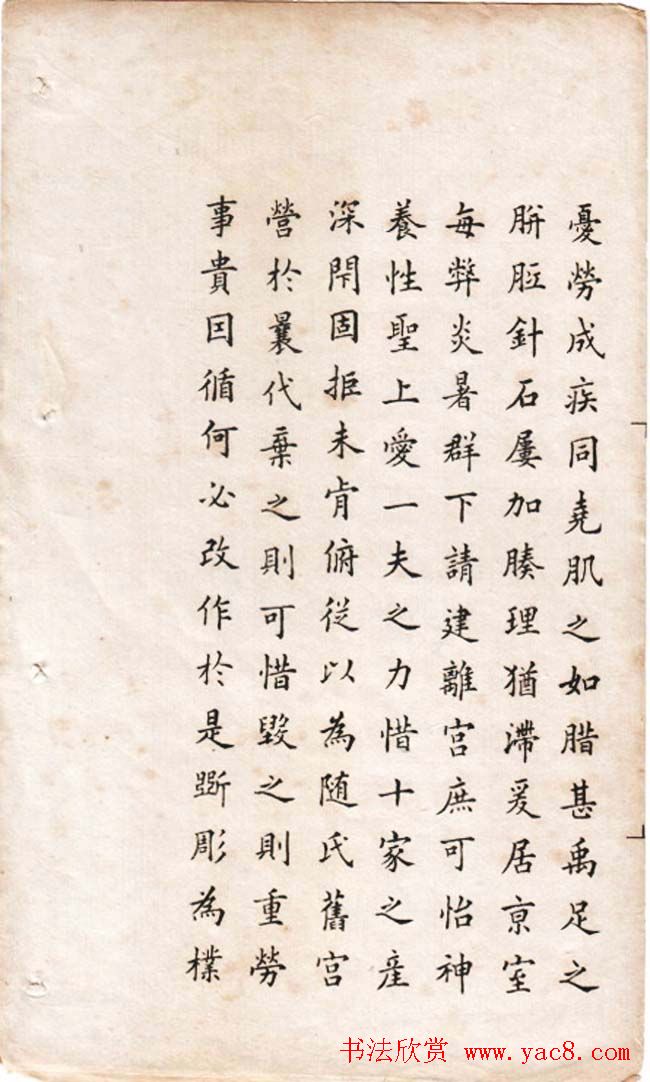 憂勞成疾同堯肌之如腊甚禹足之
胼胝針石屢加腠理猶滯爰居京室
每弊炎暑群下請建離宮庶可怡神
養性聖上愛一夫之力惜十家之產
深閇固拒未肯俯從以為随氏舊宮
營於曩代棄之則可惜毀之則重勞
事貴因循何必改作於是斵彫為樸
书法欣赏 www.yac8.com